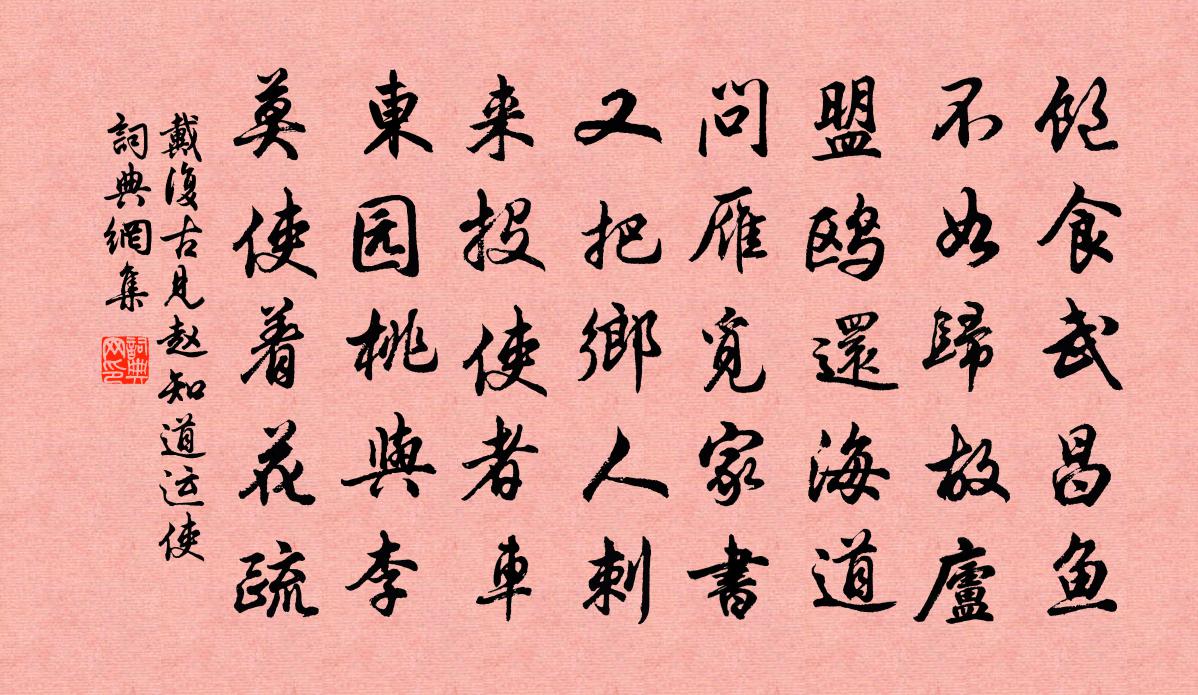 飽食武昌鱼
不如歸故廬
盟鸥還海道
問雁覓家書
又把鄉人刺
来投使者車
東园桃與李
莫使着花疏
戴復古見赵知道运使
詞典網集
詞典网印